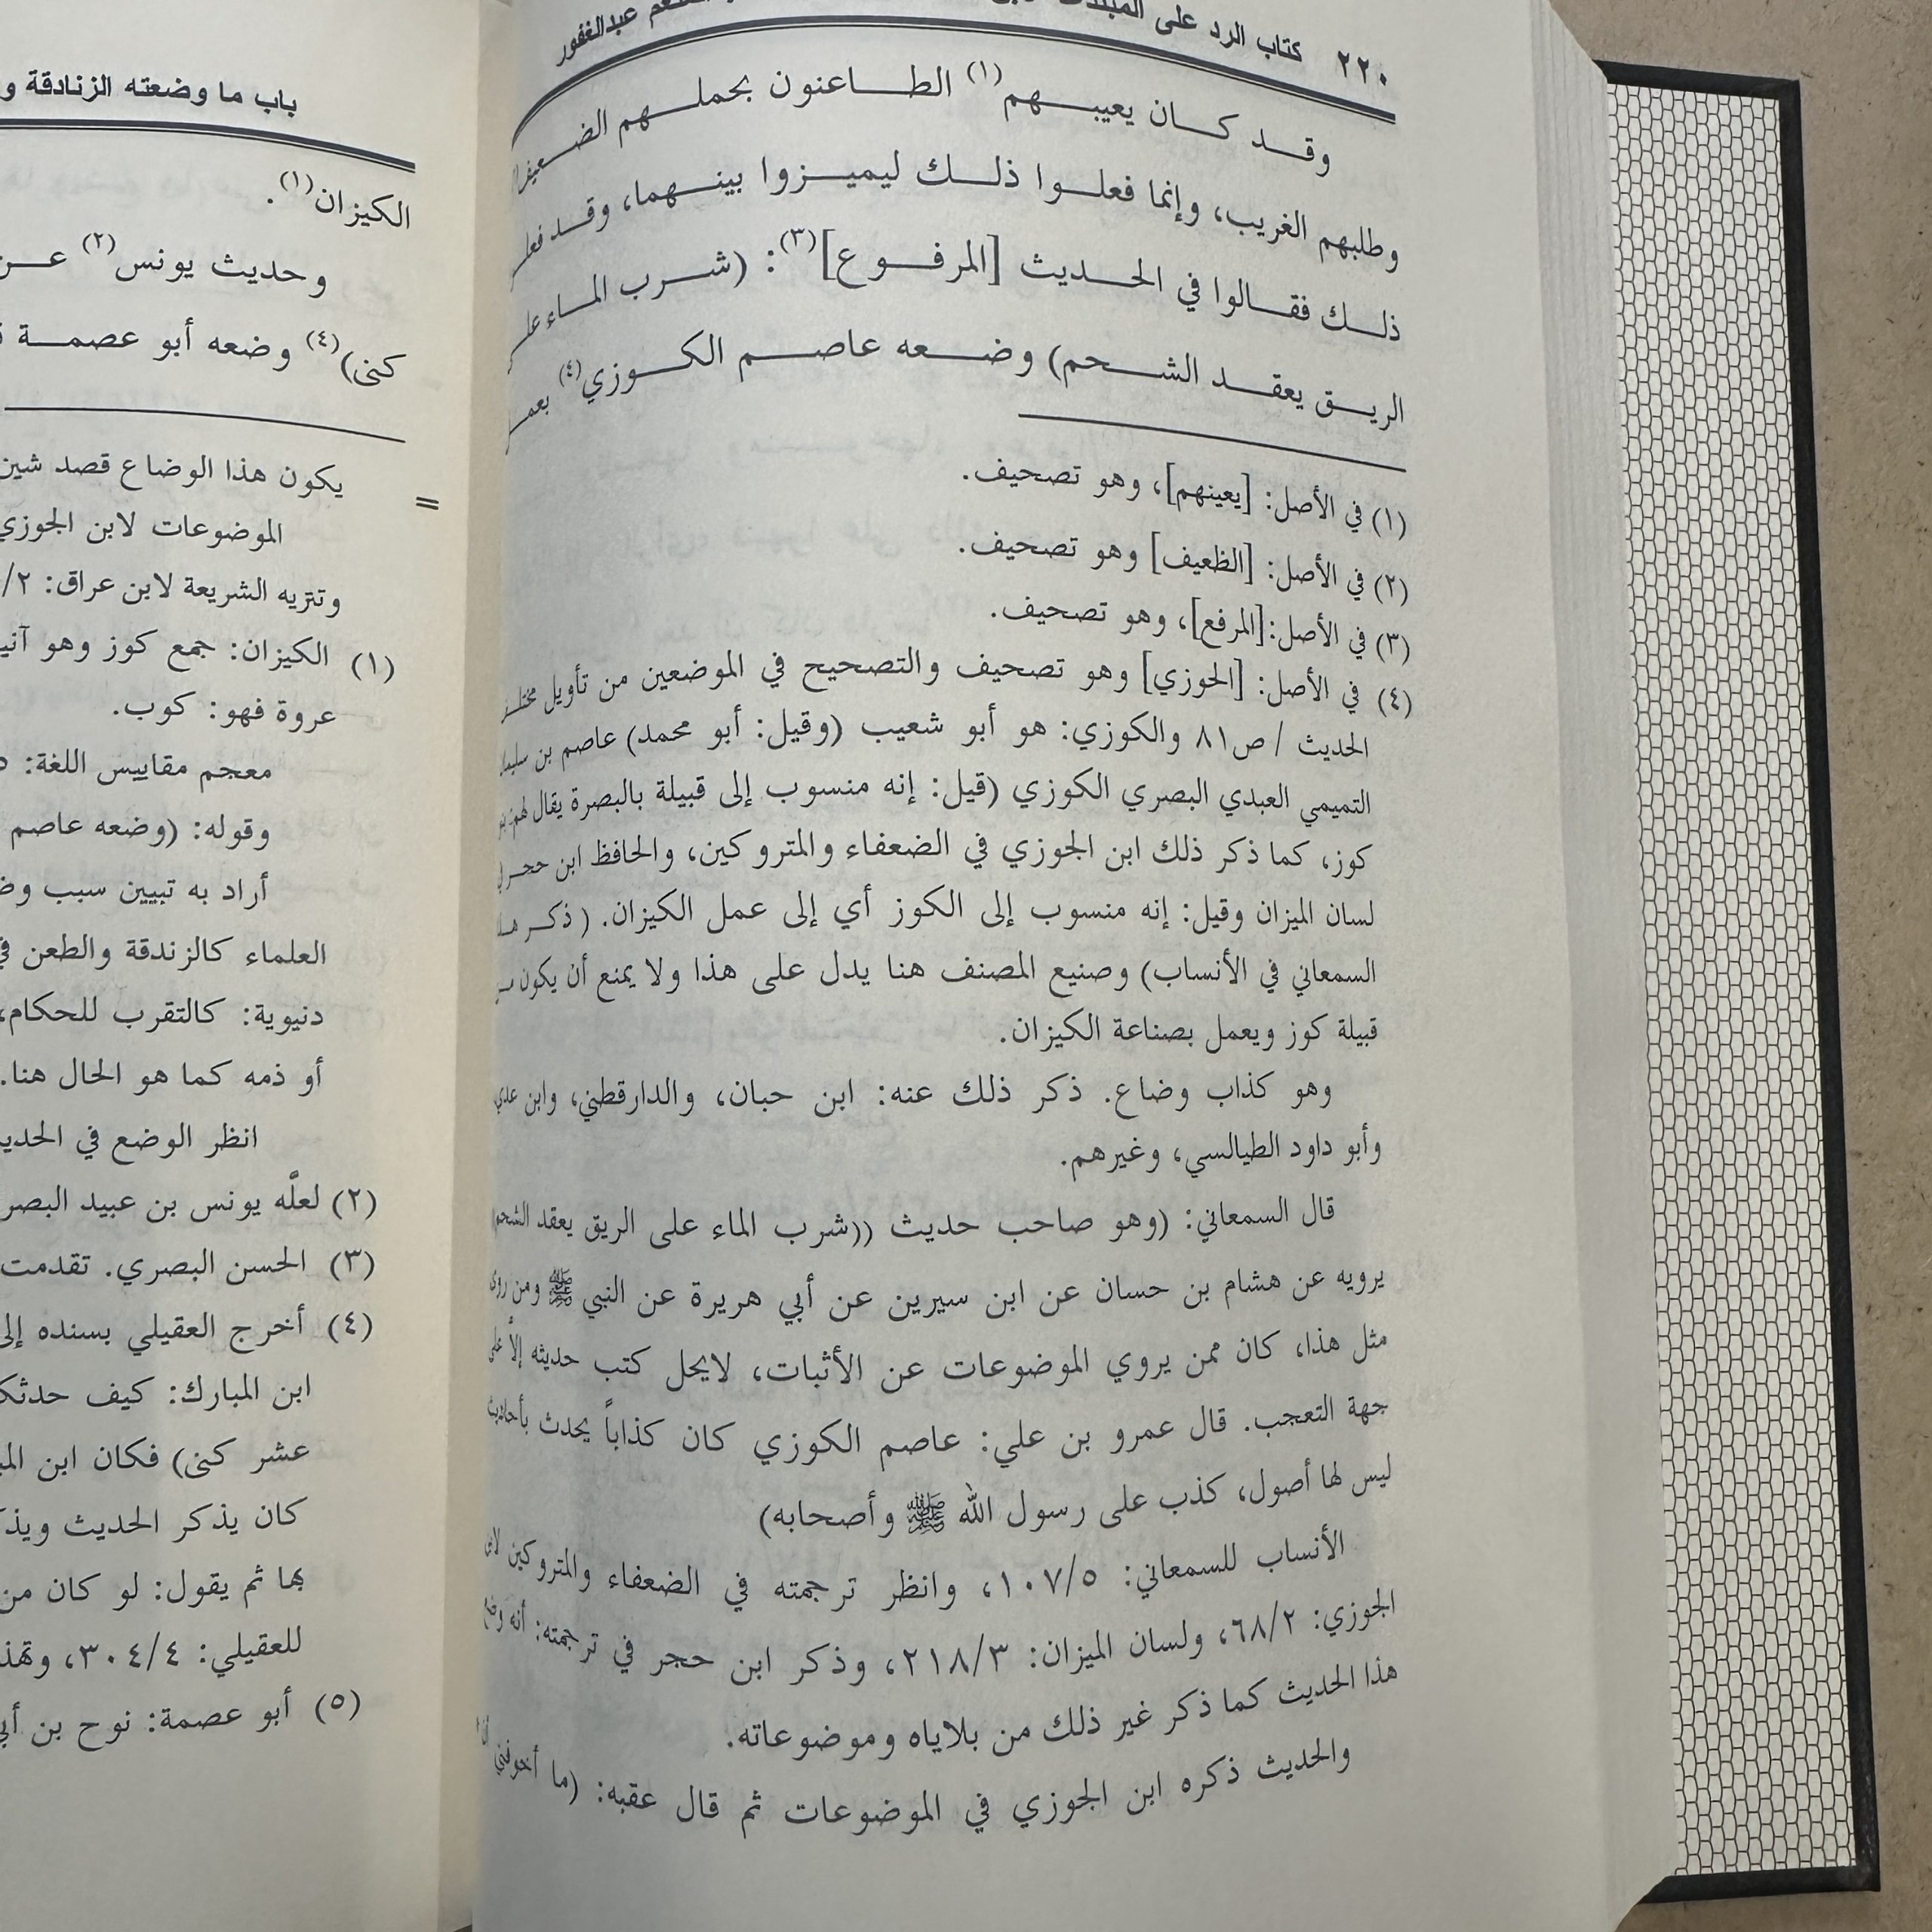 ٢٢٠ كتاب الرد على عبدالغفور
وقد كان يعيبهم(١) الطاعنون بحملهم
وطلبهم الغريب، وإنما فعلوا ذلك ليميزوا بينهما، وقد
ذلك فقالوا في الحديث [المرفوع](٣): (شرب الماء
الريق يعقد الشحم) وضعه عاصم الكوزي(٤)
(١) في الأصل: [يعينهم]، وهو تصحيف.
(٢) في الأصل: [الظعيف] وهو تصحيف.
(٣) في الأصل:[المرفع]، وهو تصحيف.
(٤) في الأصل: [الحوزي] وهو تصحيف والتصحيح في الموضعين من تأويل
الحديث / ص٨١ والكوزي: هو أبو شعيب (وقيل: أبو محمد) عاصم بن
التميمي العبدي البصري الكوزي (قيل: إنه منسوب إلى قبيلة بالبصرة يقال
كوز، كما ذكر ذلك ابن الجوزي في الضعفاء والمتروكين، والحافظ ابن حجر
لسان الميزان وقيل: إنه منسوب إلى الكوز أي إلى عمل الكيزان. (ذكر
السمعاني في الأنساب) وصنيع المصنف هنا يدل على هذا ولا يمنع أن يكون
قبيلة كوز ويعمل بصناعة الكيزان.
وهو كذاب وضاع. ذكر ذلك عنه: ابن حبان، والدارقطني، وابن عدي،
وأبو داود الطيالسي، وغيرهم.
قال السمعاني: (وهو صاحب حديث ((شرب الماء على الريق يعقد الشحم
يرويه عن هشام بن حسان عن ابن سيرين عن أبي هريرة عن النبي ﷺ ومن روى
مثل هذا، كان ممن يروي الموضوعات عن الأثبات، لايحل كتب حديثه إلاّ على
جهة التعجب. قال عمرو بن علي: عاصم الكوزي كان كذاباً يحدث بأحاديث
ليس لها أصول، كذب على رسول الله ﷺ وأصحابه)
الأنساب للسمعاني: ١٠٧/٥، وانظر ترجمته في الضعفاء والمتروكين لابن
الجوزي: ٦٨/٢، ولسان الميزان: ٢١٨/٣، وذكر ابن حجر في ترجمته: أنه
هذا الحديث كما ذكر غير ذلك من بلاياه وموضوعاته.
والحديث ذكره ابن الجوزي في الموضوعات ثم قال عقبه: (ما
باب ما وضعته الزنادقة
الكيزان(١).
وحديث يونس(٢) عن
كنى)(٤) وضعه أبو عصمة
= يكون هذا الوضاع قصد
الموضوعات لابن الجوزي
وتتريه الشريعة لابن عراق: ٢/
(١) الكيزان: جمع كوز وهو
عروة فهو: كوب.
معجم مقاييس اللغة:
وقوله: (وضعه عاصم
أراد به تبيين سبب
العلماء كالزندقة والطعن
دنيوية: كالتقرب للحكام،
أو ذمه كما هو الحال هنا.
انظر الوضع في
(٢) لعلّه يونس بن عبيد
(٣) الحسن البصري. تقدمت
(٤) أخرج العقيلي بسنده
ابن المبارك: كيف
عشر كنى) فكان ابن
كان يذكر الحديث
بها ثم يقول: لو كان
للعقيلي: ٣٠٤/٤،
(٥) أبو عصمة: نوح بن